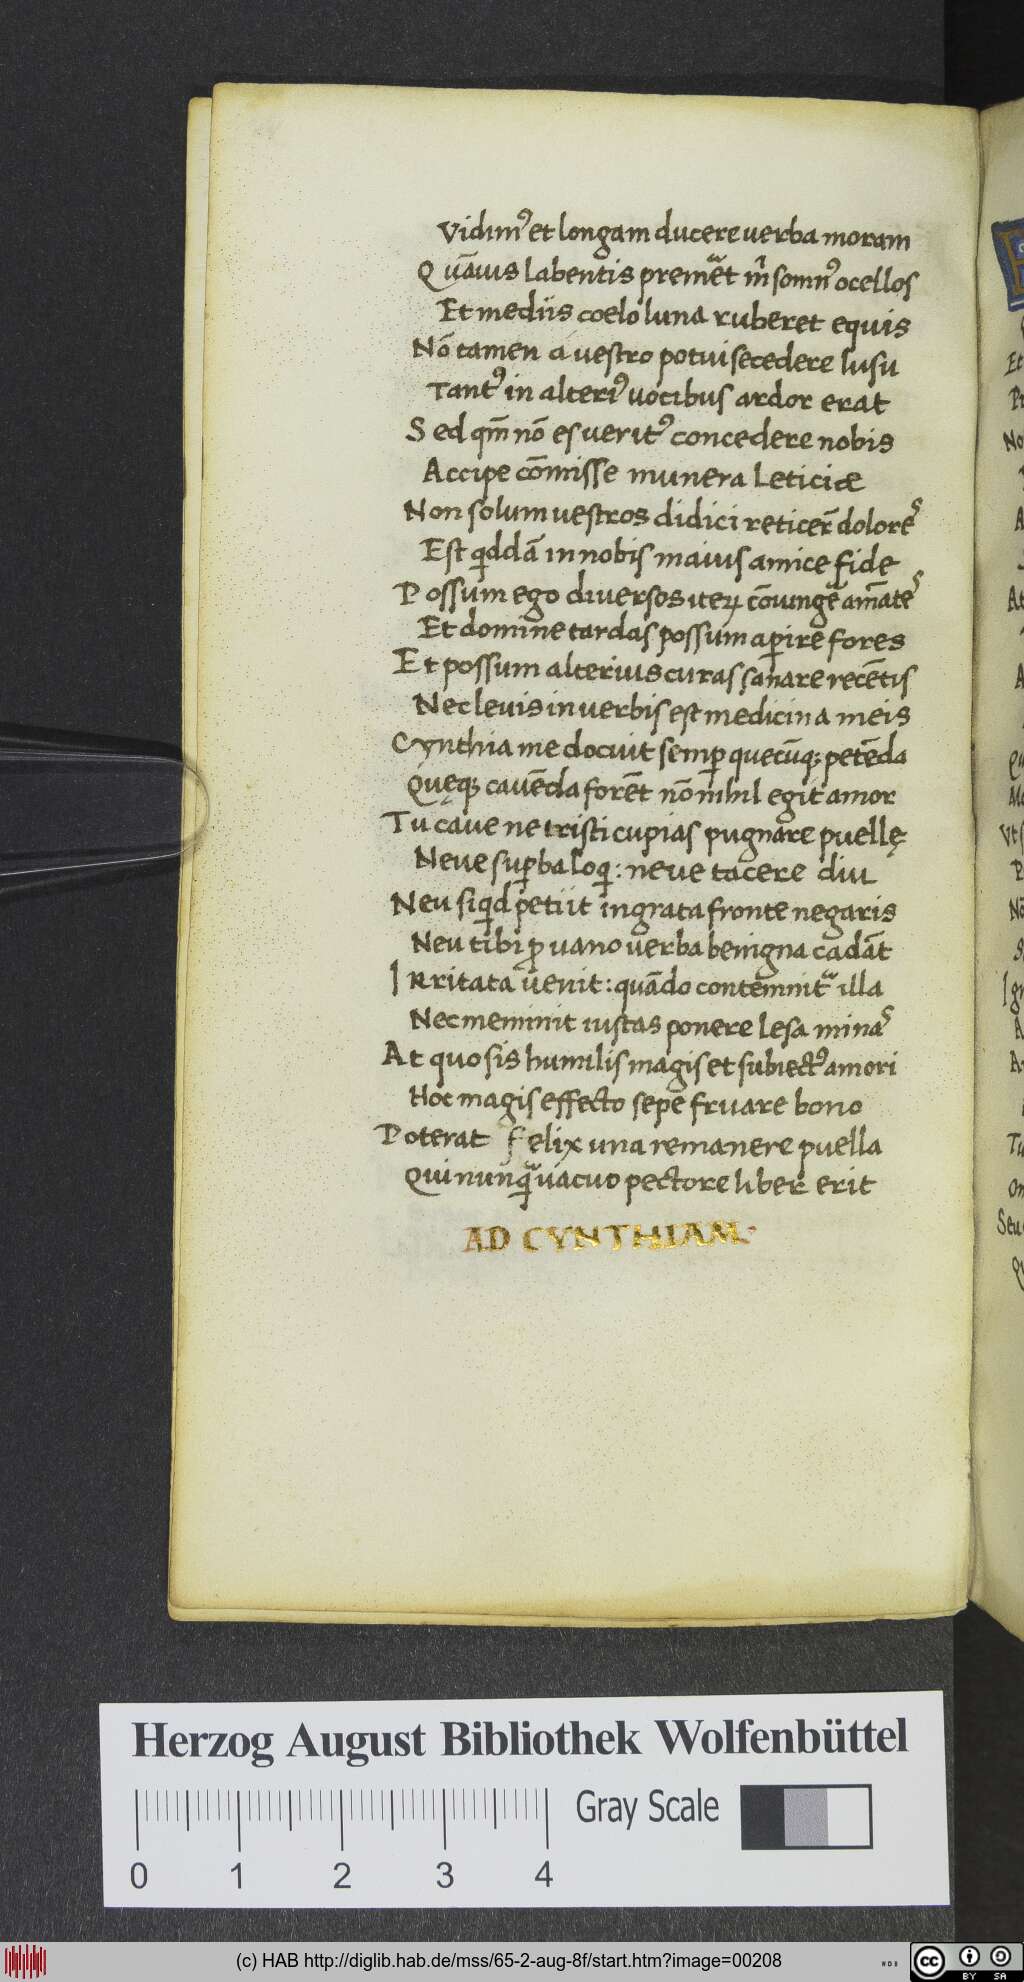 Vidim᾽ et longam ducere uerba moram
Quãuis labentis premet᷑ m̃ somn᾽ ocellos
Et mediis coelo luna ruberet equis
Nõ tamen a uestro potui secedere lusu
Tant᾽ in alteri᾽ uocibus ardor erat
Sed qm̃ nõ es uerit᾽ concedere nobis
Accipe cõmisse munera Leticiæ
Non solum uestros didici reticer̃ dolore᾽
Est qiddã in nobis maius amice fide
Possum ego diuersos iteꝝ cõiungẽ amãte᾽
Et domine tardas possum apire fores
Et possum alterius curas sanare recẽtis
Nec leuis in uerbis est medicina meis
Cynthia me docuit semꝑ quecũqꝫ petẽda
Queqꝫ cauẽda forẽt nõ nihil egit amor
Tu caue ne tristi cupias pugnare puellę
Neue suꝑba loqi: neue tacere diu
Neu siqid petiit ingrata fronte negaris
Neu tibi ꝓ uano uerba benigna cadãt
Irritata uenit: quãdo contẽnnit᷑ illa
Nec meminit iustas ponere lesa mina᾽
At quo sis humilis magis et subiect᾽ amori
Hoc magis effecto sepe fruare bono
Poterat felix una remanere puella
Qui nunq̃ uacuo pectore liber erit
AD CYNTHIAM.
Herzog August Bibliothek Wolfenbüttel
0 1 2 3 4
Gray Scale
(c) HAB http://diglib.hab.de/mss/65-2-aug-8f/start.htm?image=00208
cc BY SA